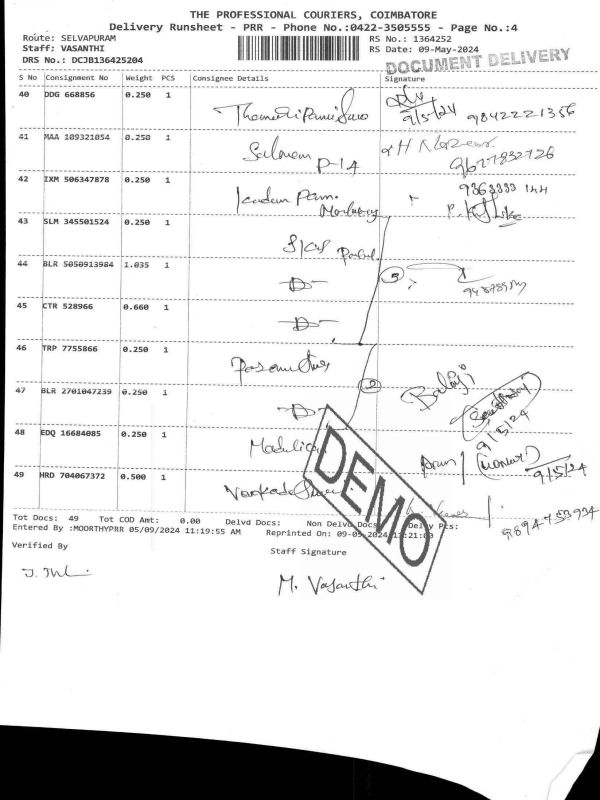 THE PROFESSIONAL COURIERS, COIMBATORE
Delivery Runsheet - PRR - Phone No.:0422-3505555 - Page No.:4
Route: SELVAPURAM RS No.: 1364252
Staff: VASANTHI RS Date: 09-May-2024
DRS No.: DCJB136425204 DOCUMENT DELIVERY
S No Consignment No Weight PCS Consignee Details Signature
40 DDG 668856 0.250 1
9/5/24 9842221356
41 MAA 109321054 0.250 1
Salmon P-14 9627832726
42 IXM 506347878 0.250 1
9363333 144
43 SLM 345501524 0.250 1
44 BLR 5050913984 1.035 1
-D-
45 CTR 528966 0.660 1
-D-
46 TRP 7755866 0.250 1
Balaji
47 BLR 2701047239 0.250 1
-D- 9/5/24
48 EDQ 16684085 0.250 1
Arun 9/5/24
49 HRD 704067372 0.500 1
9894753934
Tot Docs: 49 Tot COD Amt: 0.00 Delvd Docs: Non Delvd Docs: Delay Pcs:
Entered By :MOORTHYPRR 05/09/2024 11:19:55 AM Reprinted On: 09-05-2024 17:21:00
DEMO
Verified By Staff Signature
M. Vasanthi